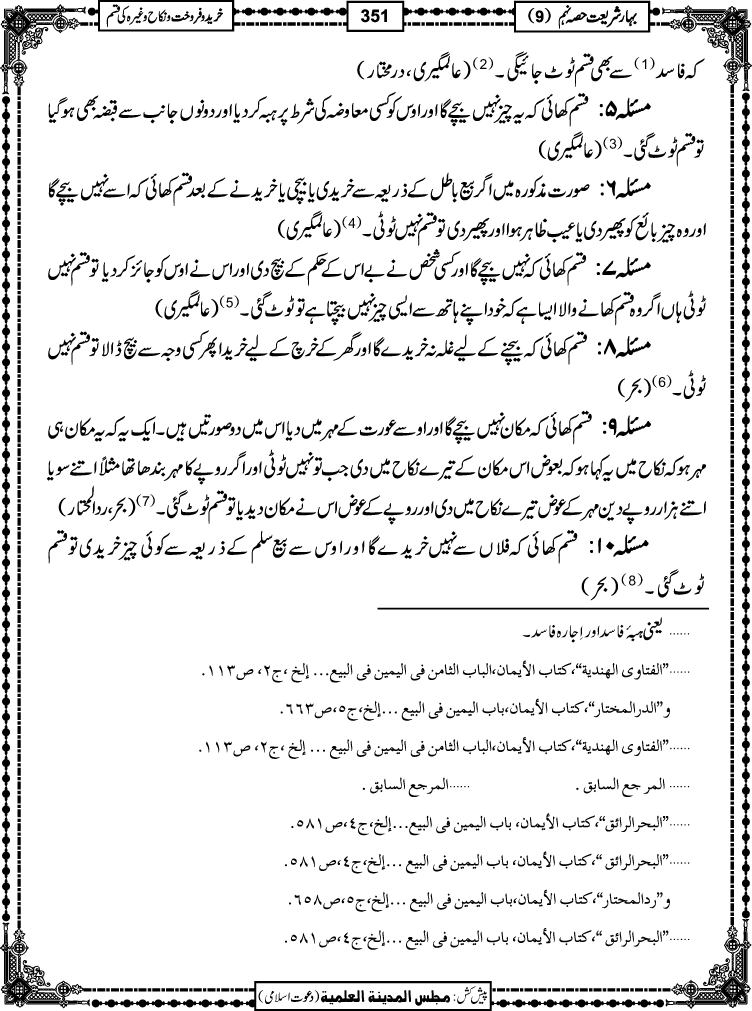 بہارِ شریعت حصہ نہم (9)
351
خرید و فروخت و نکاح وغیرہ کی قسم
کہ فاسد (1) سے بھی قسم ٹوٹ جائیگی۔ (2) (عالمگیری، درمختار)
مسئلہ ۵: قسم کھائی کہ یہ چیز نہیں بیچے گا اور اوس کو کسی معاوضہ کی شرط پر ہبہ کر دیا اور دونوں جانب سے قبضہ بھی ہوگیا
تو قسم ٹوٹ گئی۔ (3) (عالمگیری)
مسئلہ ۶: صورت مذکورہ میں اگر بیع باطل کے ذریعہ سے خریدی یا بیچی یا خریدنے کے بعد قسم کھائی کہ اسے نہیں بیچے گا
اور وہ چیز بائع کو پھیر دی یا عیب ظاہر ہوا اور پھیر دی تو قسم نہیں ٹوٹی۔ (4) (عالمگیری)
مسئلہ ۷: قسم کھائی کہ نہیں بیچے گا اور کسی شخص نے بے اس کے حکم کے بیچ دی اور اس نے اوس کو جائز کر دیا تو قسم نہیں
ٹوٹی ہاں اگر وہ قسم کھانے والا ایسا ہے کہ خود اپنے ہاتھ سے ایسی چیز نہیں بیچتا ہے تو ٹوٹ گئی۔ (5) (عالمگیری)
مسئلہ ۸: قسم کھائی کہ بیچنے کے لیے غلہ نہ خریدے گا اور گھر کے خرچ کے لیے خریدا پھر کسی وجہ سے بیچ ڈالا تو قسم نہیں
ٹوٹی۔ (6) (بحر)
مسئلہ ۹: قسم کھائی کہ مکان نہیں بیچے گا اور اوسے عورت کے مہر میں دیا اس میں دو صورتیں ہیں۔ ایک یہ کہ یہ مکان ہی
مہر ہو کہ نکاح میں یہ کہا ہو کہ بعوض اس مکان کے تیرے نکاح میں دی جب تو نہیں ٹوٹی اور اگر روپے کا مہر بندھا تھا مثلاً اتنے سو یا
اتنے ہزار روپے دین مہر کے عوض تیرے نکاح میں دی اور روپے کے عوض اس نے مکان دیدیا تو قسم ٹوٹ گئی۔ (7) (بحر، ردالمحتار)
مسئلہ ۱۰: قسم کھائی کہ فلاں سے نہیں خریدے گا اور اوس سے بیع سلم کے ذریعہ سے کوئی چیز خریدی تو قسم
ٹوٹ گئی۔ (8) (بحر)
...... یعنی ہبۂ فاسد اور اِجارہ فاسد۔
......”الفتاوی الهندية“،كتاب الأيمان،الباب الثامن في اليمين في البيع... إلخ ،ج٢، ص١١٣.
و”الدرالمختار“،كتاب الأيمان،باب اليمين في البيع ...إلخ،ج٥،ص٦٦٣.
......”الفتاوی الهندية“،كتاب الأيمان،الباب الثامن في اليمين في البيع ... إلخ ،ج٢، ص١١٣.
...... المرجع السابق . ......المرجع السابق .
......”البحرالرائق“،كتاب الأيمان، باب اليمين في البيع...إلخ،ج٤،ص٥٨١.
......”البحرالرائق“،كتاب الأيمان، باب اليمين في البيع ...إلخ،ج٤،ص٥٨١.
و”ردالمحتار“،كتاب الأيمان،باب اليمين في البيع ...إلخ،ج٥،ص٦٥٨.
......”البحرالرائق“،كتاب الأيمان، باب اليمين في البيع ...إلخ،ج٤،ص٥٨١.
پیش کش: مجلس المدینة العلمیة (دعوت اسلامی)